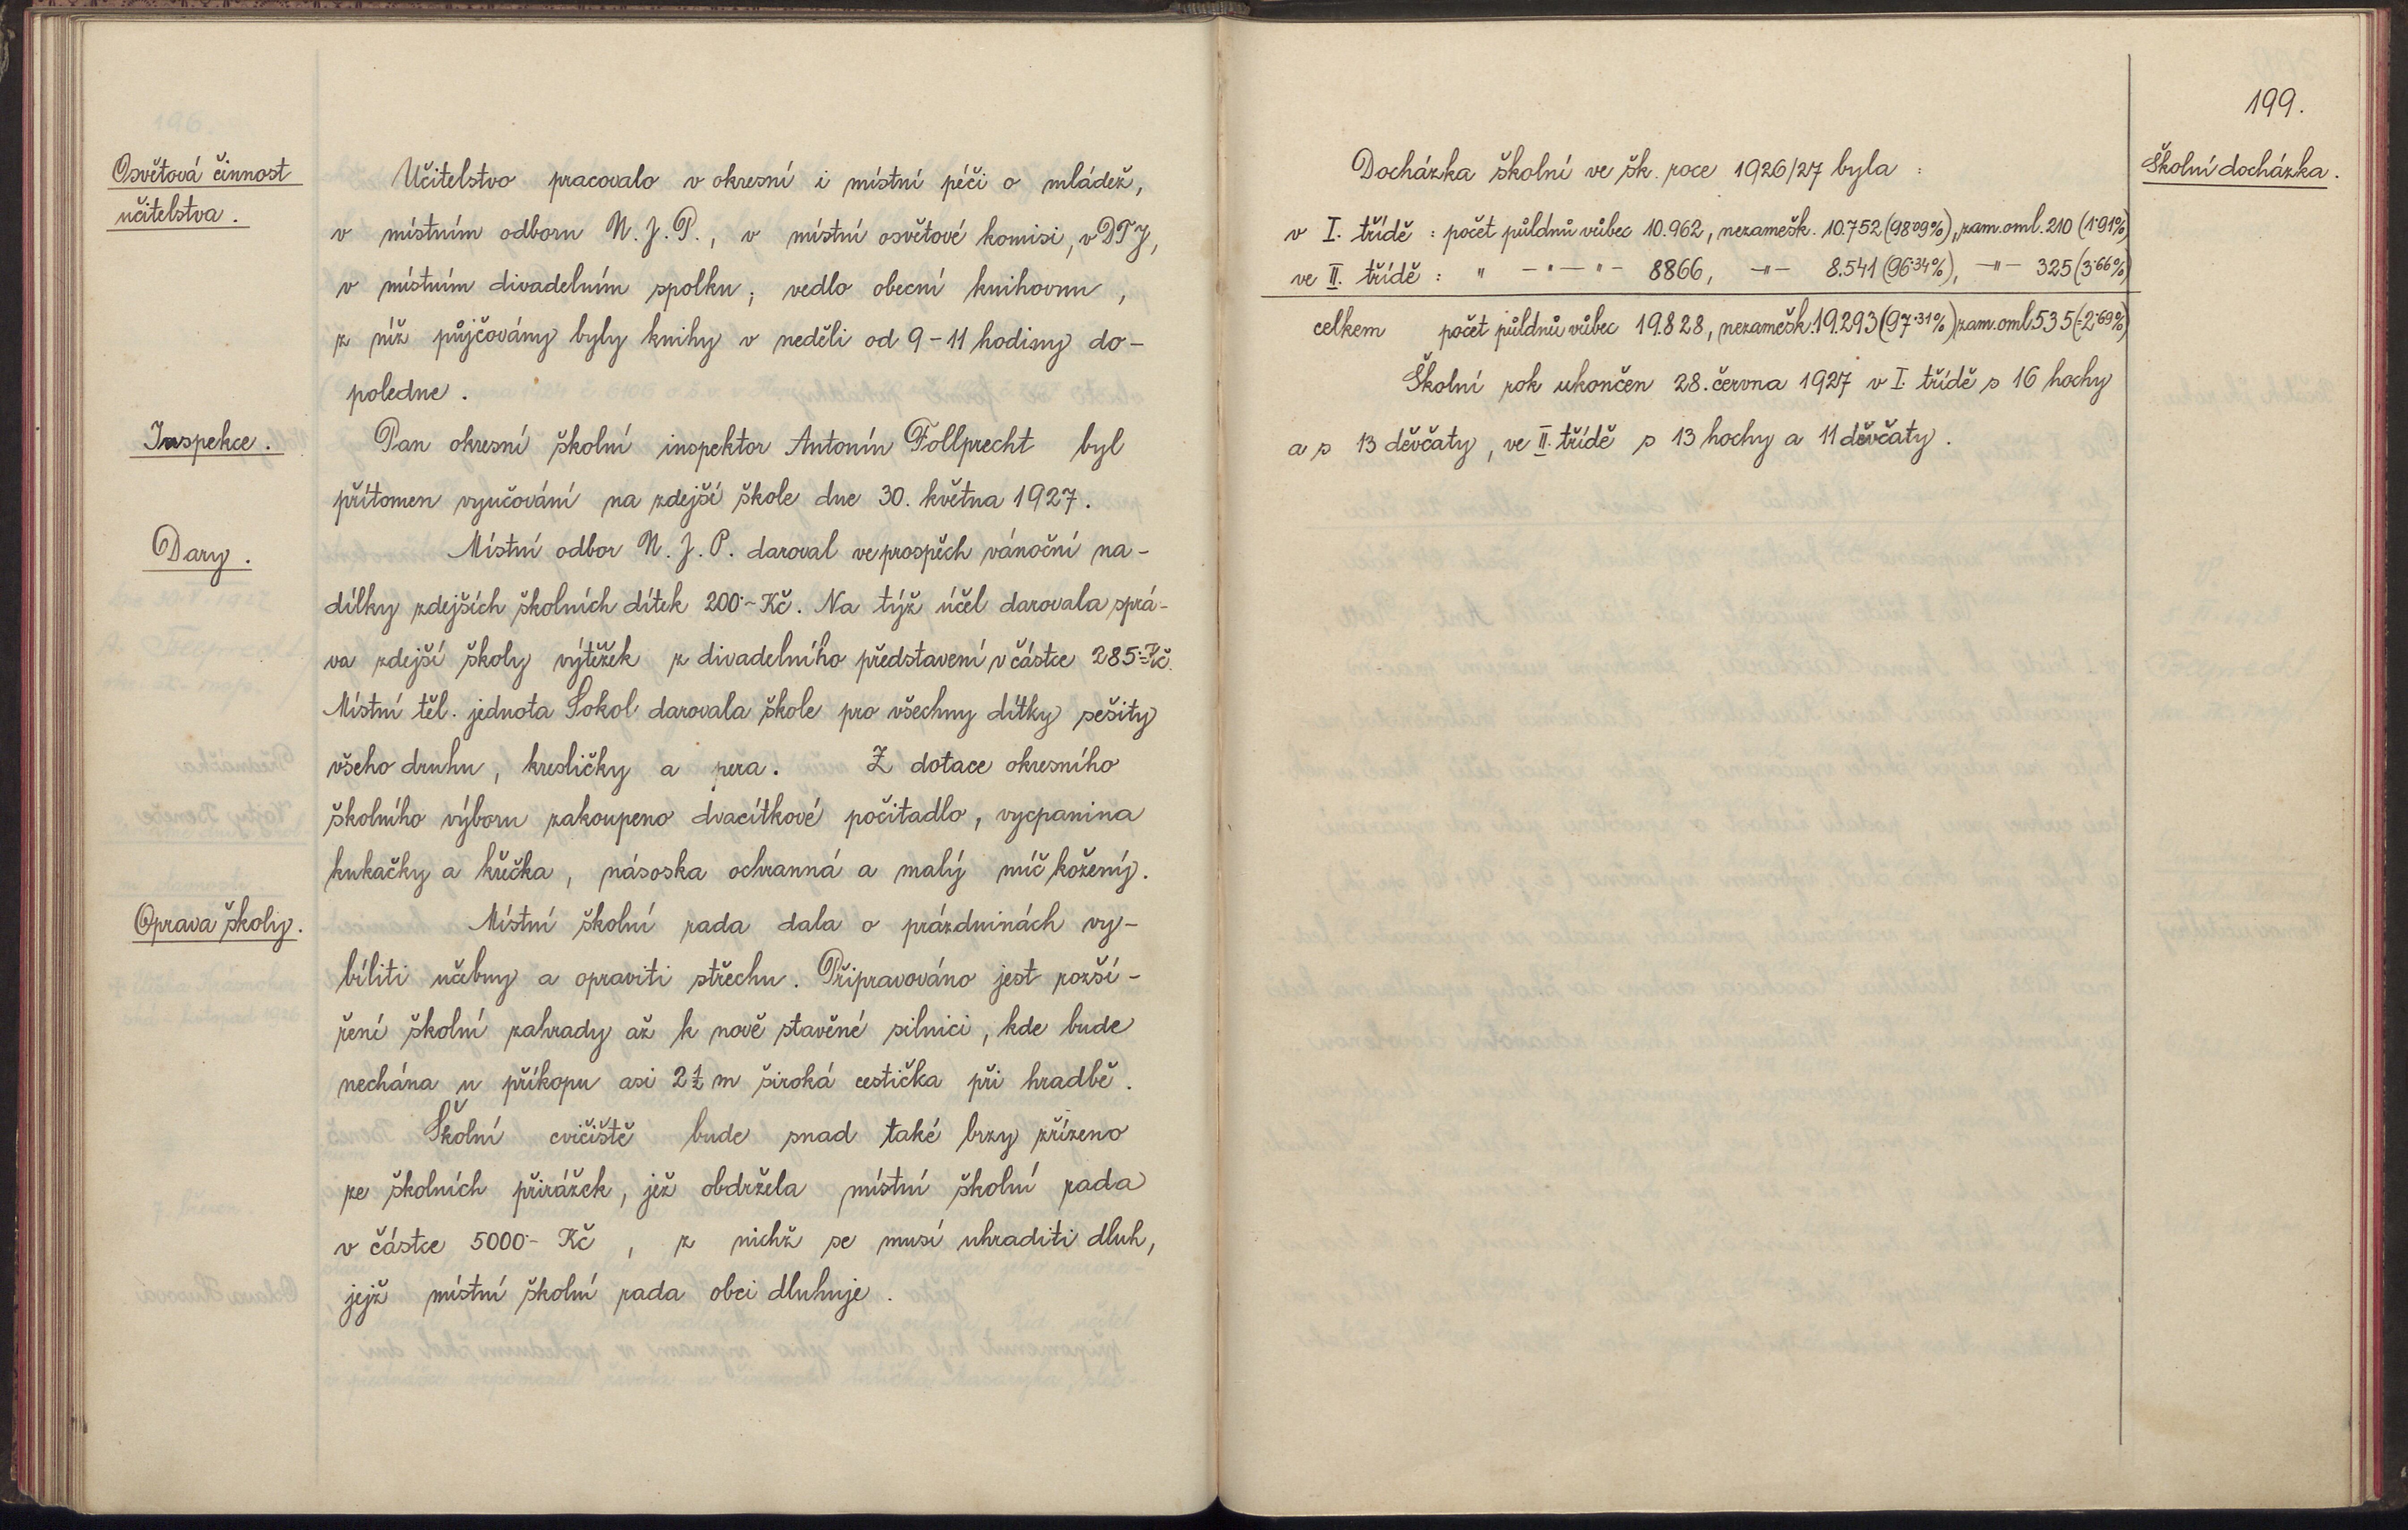 Osvětová činnost
učitelstva.
Učitelstvo pracovalo v okresní i místní péči o mládež,
v místním odboru N. J. P., v místní osvětové komisi, v DTJ,
v místním divadelním spolku; vedlo obecní knihovnu,
z níž půjčovány byly knihy v neděli od 9-11 hodiny do-
poledne.
Inspekce.
Pan okresní školní inspektor Antonín Follprecht byl
přítomen vyučování na zdejší škole dne 30. května 1927.
Dary.
Místní odbor N. J. P. daroval ve prospěch vánoční na-
dílky zdejších školních dítek 200·- Kč. Na týž účel darovala sprá-
va zdejší školy výtěžek z divadelního představení v částce 285·- Kč.
Místní těl. jednota Sokol darovala škole pro všechny dítky sešity
všeho druhu, kresličky a pera. Z dotace okresního
školního výboru zakoupeno dvacítkové počitadlo, vycpanina
kukačky a křečka, násoska ochranná a malý míč kožený.
Oprava školy.
Místní školní rada dala o prázdninách vy-
bíliti učebny a opraviti střechu. Připravováno jest rozší-
ření školní zahrady až k nově stavěné silnici, kde bude
nechána u příkopu asi 2½ m široká cestička při hradbě.
Školní cvičiště bude snad také brzy zřízeno
ze školních přirážek, jež obdržela místní školní rada
v částce 5000·- Kč, z nichž se musí uhraditi dluh,
jejž místní školní rada obci dluhuje.
199.
Školní docházka.
Docházka školní ve šk. roce 1926/27 byla :
v I. třídě : počet půldnů vůbec 10.962, nezamešk. 10.752 (98·09%), zam. oml. 210 (1·91%)
ve II. třídě : " -"-"- 8866, -"- 8.541 (96·34%), -"- 325 (3·66%)
celkem počet půldnů vůbec 19.828, nezamešk. 19.293 (97·31%) zam. oml. 535 (=2·69%)
Školní rok ukončen 28. června 1927 v I. třídě s 16 hochy
a s 13 děvčaty, ve II. třídě s 13 hochy a 11 děvčaty.